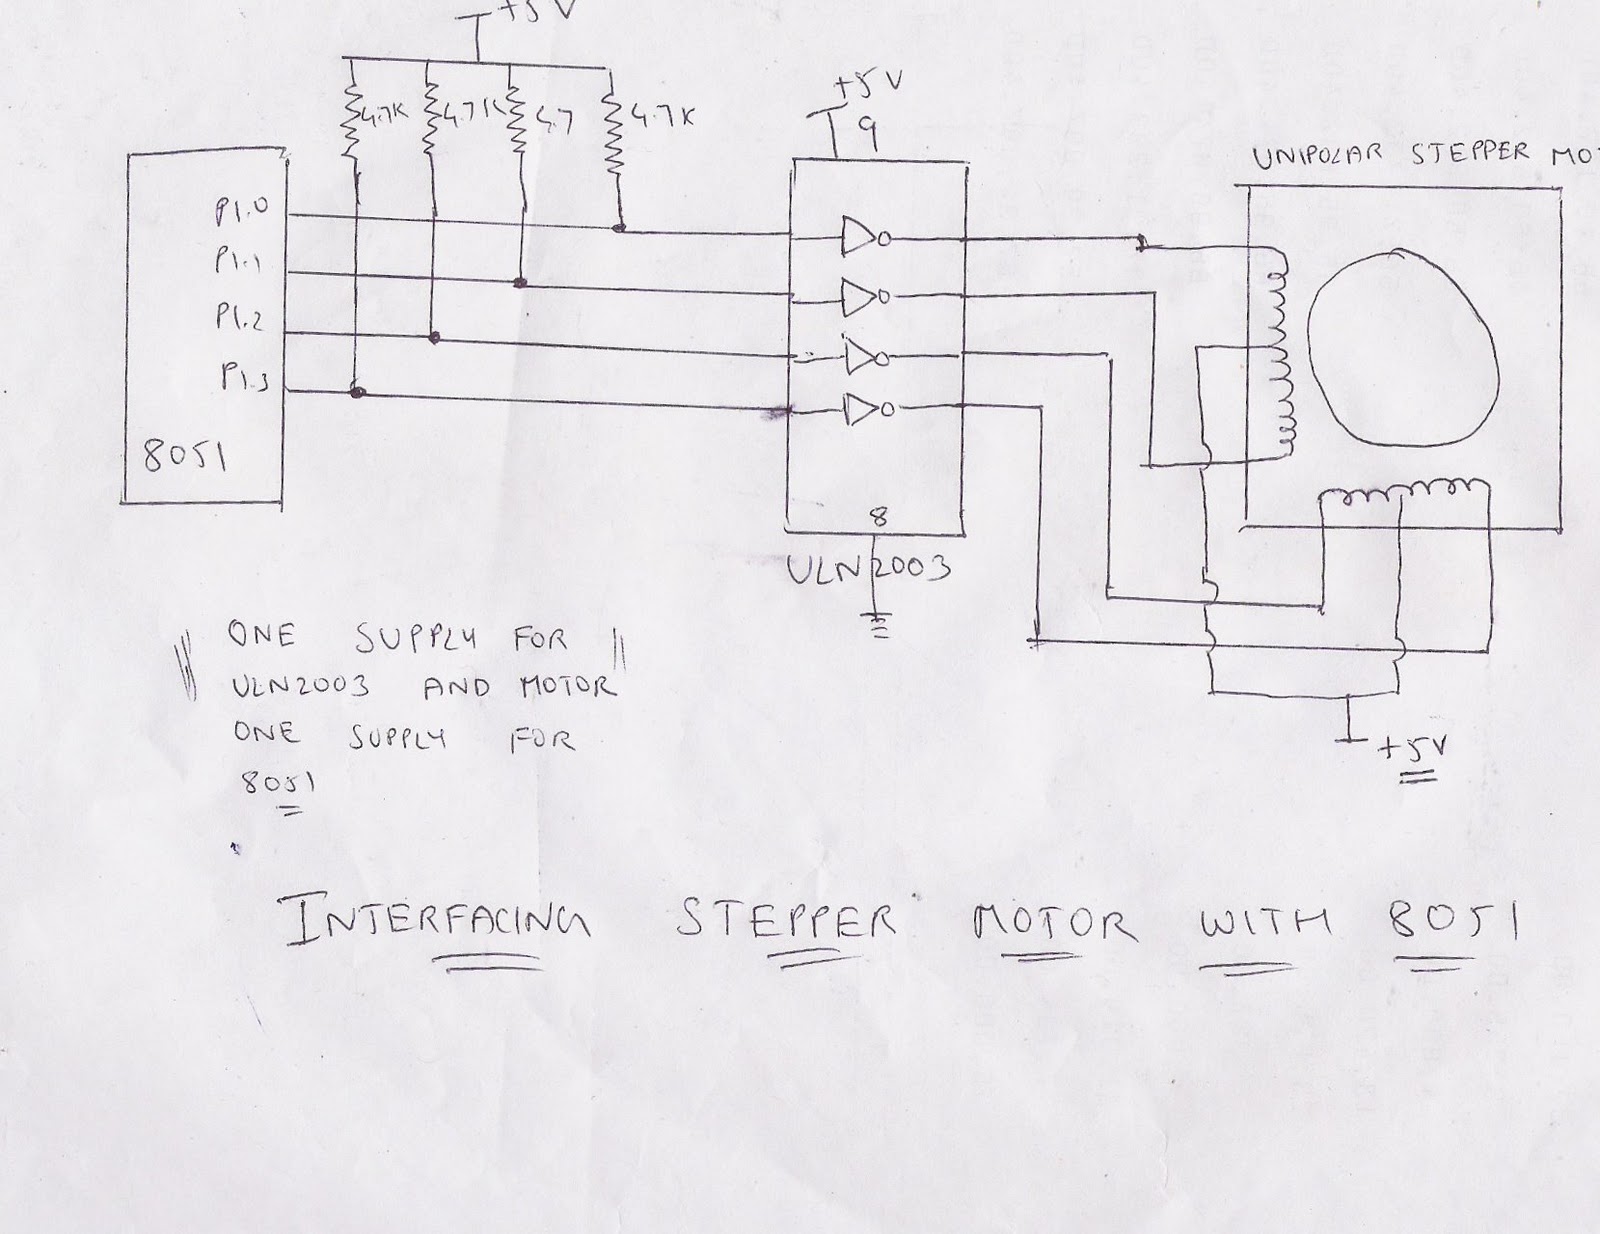 +5V
4.7K 4.7K 4.7 4.7K
+5V
9
UNIPOLAR STEPPER MO
P1.0
P1.1
P1.2
P1.3
8051
8
ULN2003
ONE SUPPLY FOR
ULN2003 AND MOTOR
ONE SUPPLY FOR
8051
+5V
INTERFACING STEPPER MOTOR WITH 8051